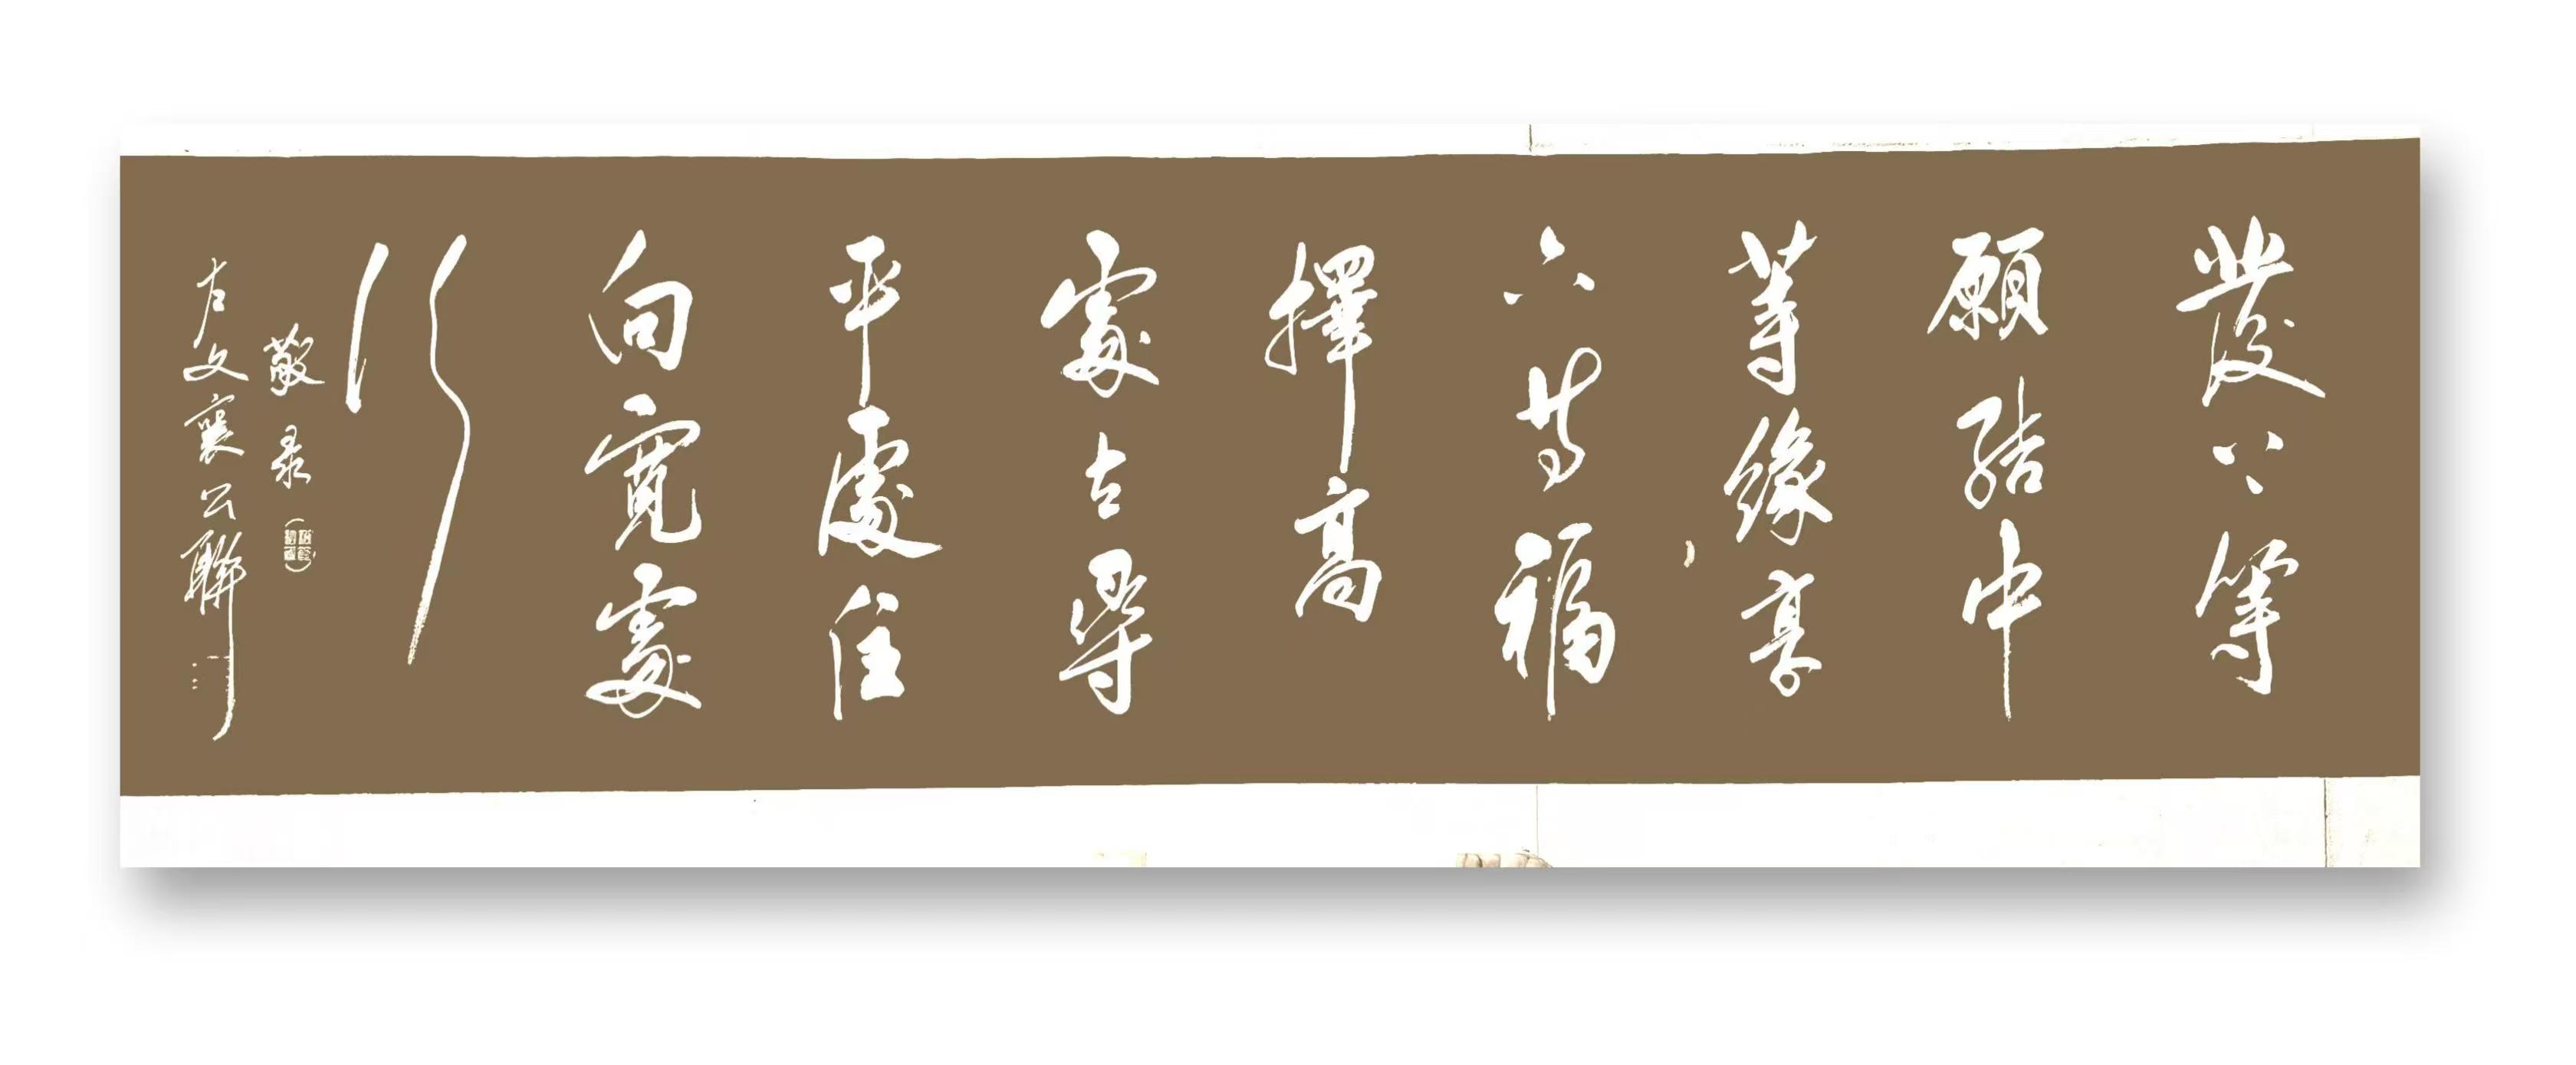 發上等
願結中
等緣享
下等福
擇高
處立尋
平處住
向寬處
行
敬录
左文襄公聯